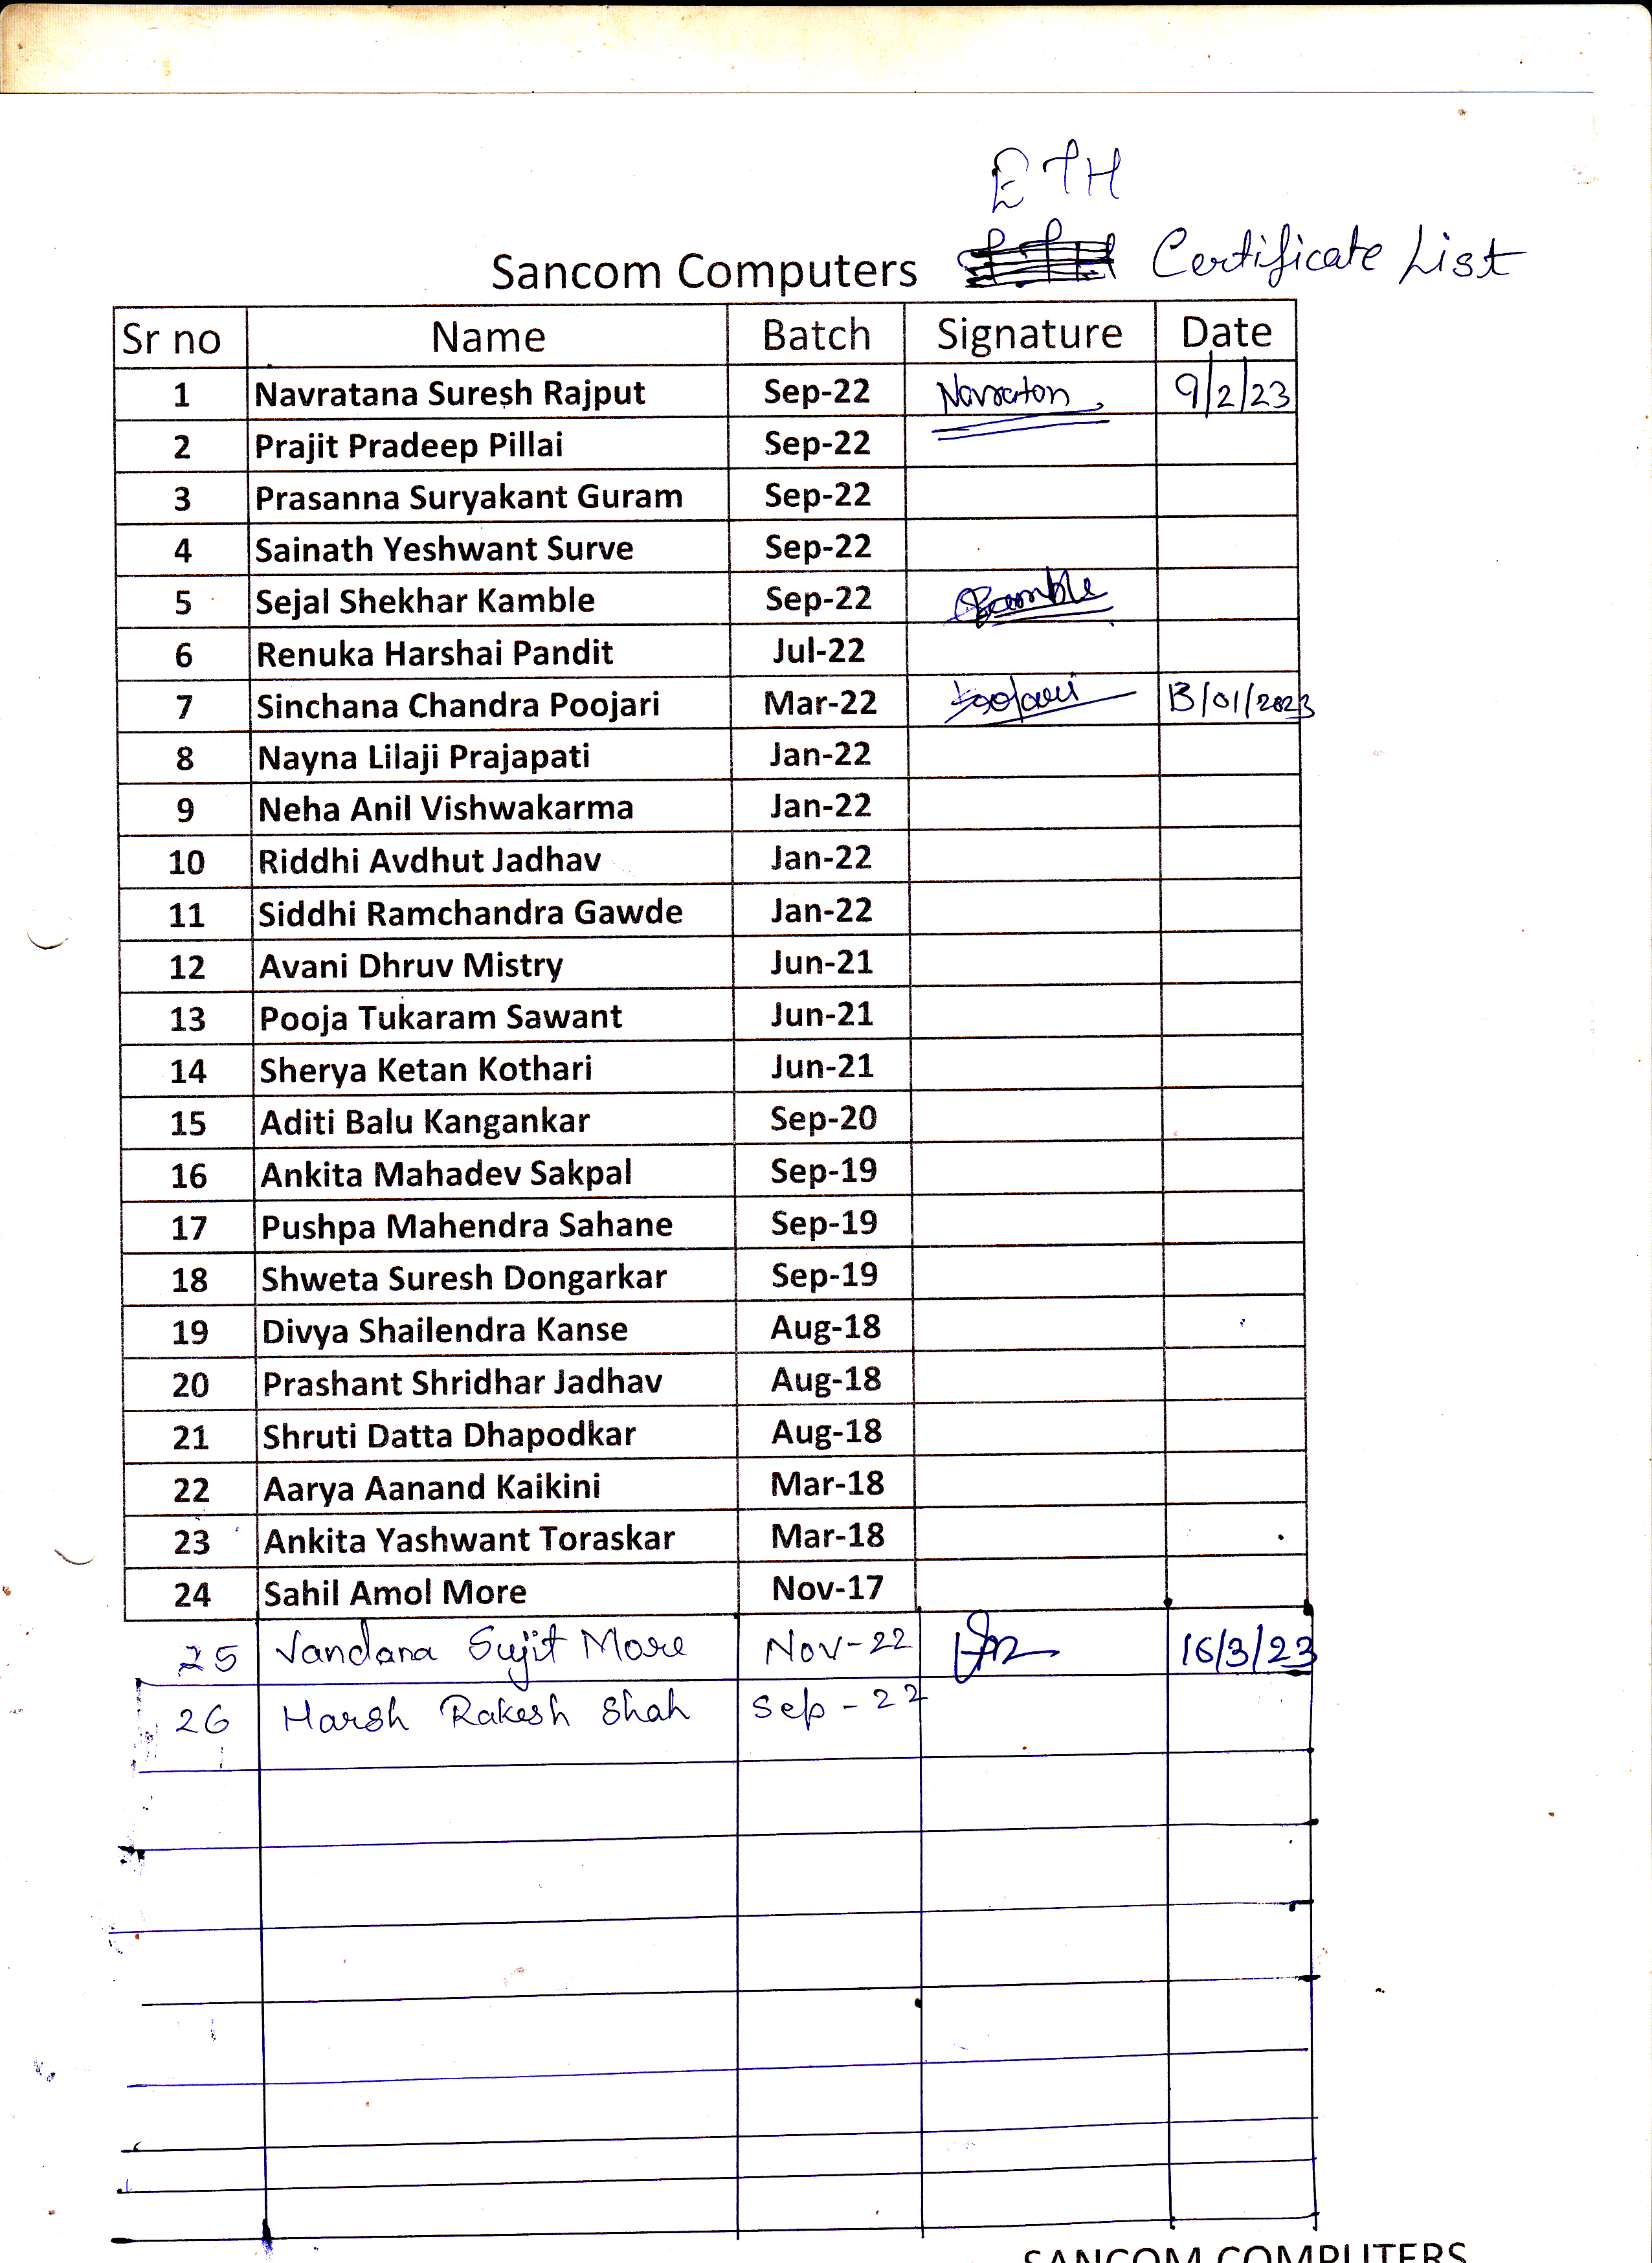 ETH
Sancom Computers Certificate List
Sr no Name Batch Signature Date
1 Navratana Suresh Rajput Sep-22 Navratan 9/2/23
2 Prajit Pradeep Pillai Sep-22
3 Prasanna Suryakant Guram Sep-22
4 Sainath Yeshwant Surve Sep-22
5 Sejal Shekhar Kamble Sep-22
6 Renuka Harshai Pandit Jul-22
7 Sinchana Chandra Poojari Mar-22 Poojari 13/01/2023
8 Nayna Lilaji Prajapati Jan-22
9 Neha Anil Vishwakarma Jan-22
10 Riddhi Avdhut Jadhav Jan-22
11 Siddhi Ramchandra Gawde Jan-22
12 Avani Dhruv Mistry Jun-21
13 Pooja Tukaram Sawant Jun-21
14 Sherya Ketan Kothari Jun-21
15 Aditi Balu Kangankar Sep-20
16 Ankita Mahadev Sakpal Sep-19
17 Pushpa Mahendra Sahane Sep-19
18 Shweta Suresh Dongarkar Sep-19
19 Divya Shailendra Kanse Aug-18
20 Prashant Shridhar Jadhav Aug-18
21 Shruti Datta Dhapodkar Aug-18
22 Aarya Aanand Kaikini Mar-18
23 Ankita Yashwant Toraskar Mar-18
24 Sahil Amol More Nov-17
25 Vandana Sujit More Nov-22 16/3/23
26 Harsh Rakesh Shah Sep-22
SANCOM COMPUTERS